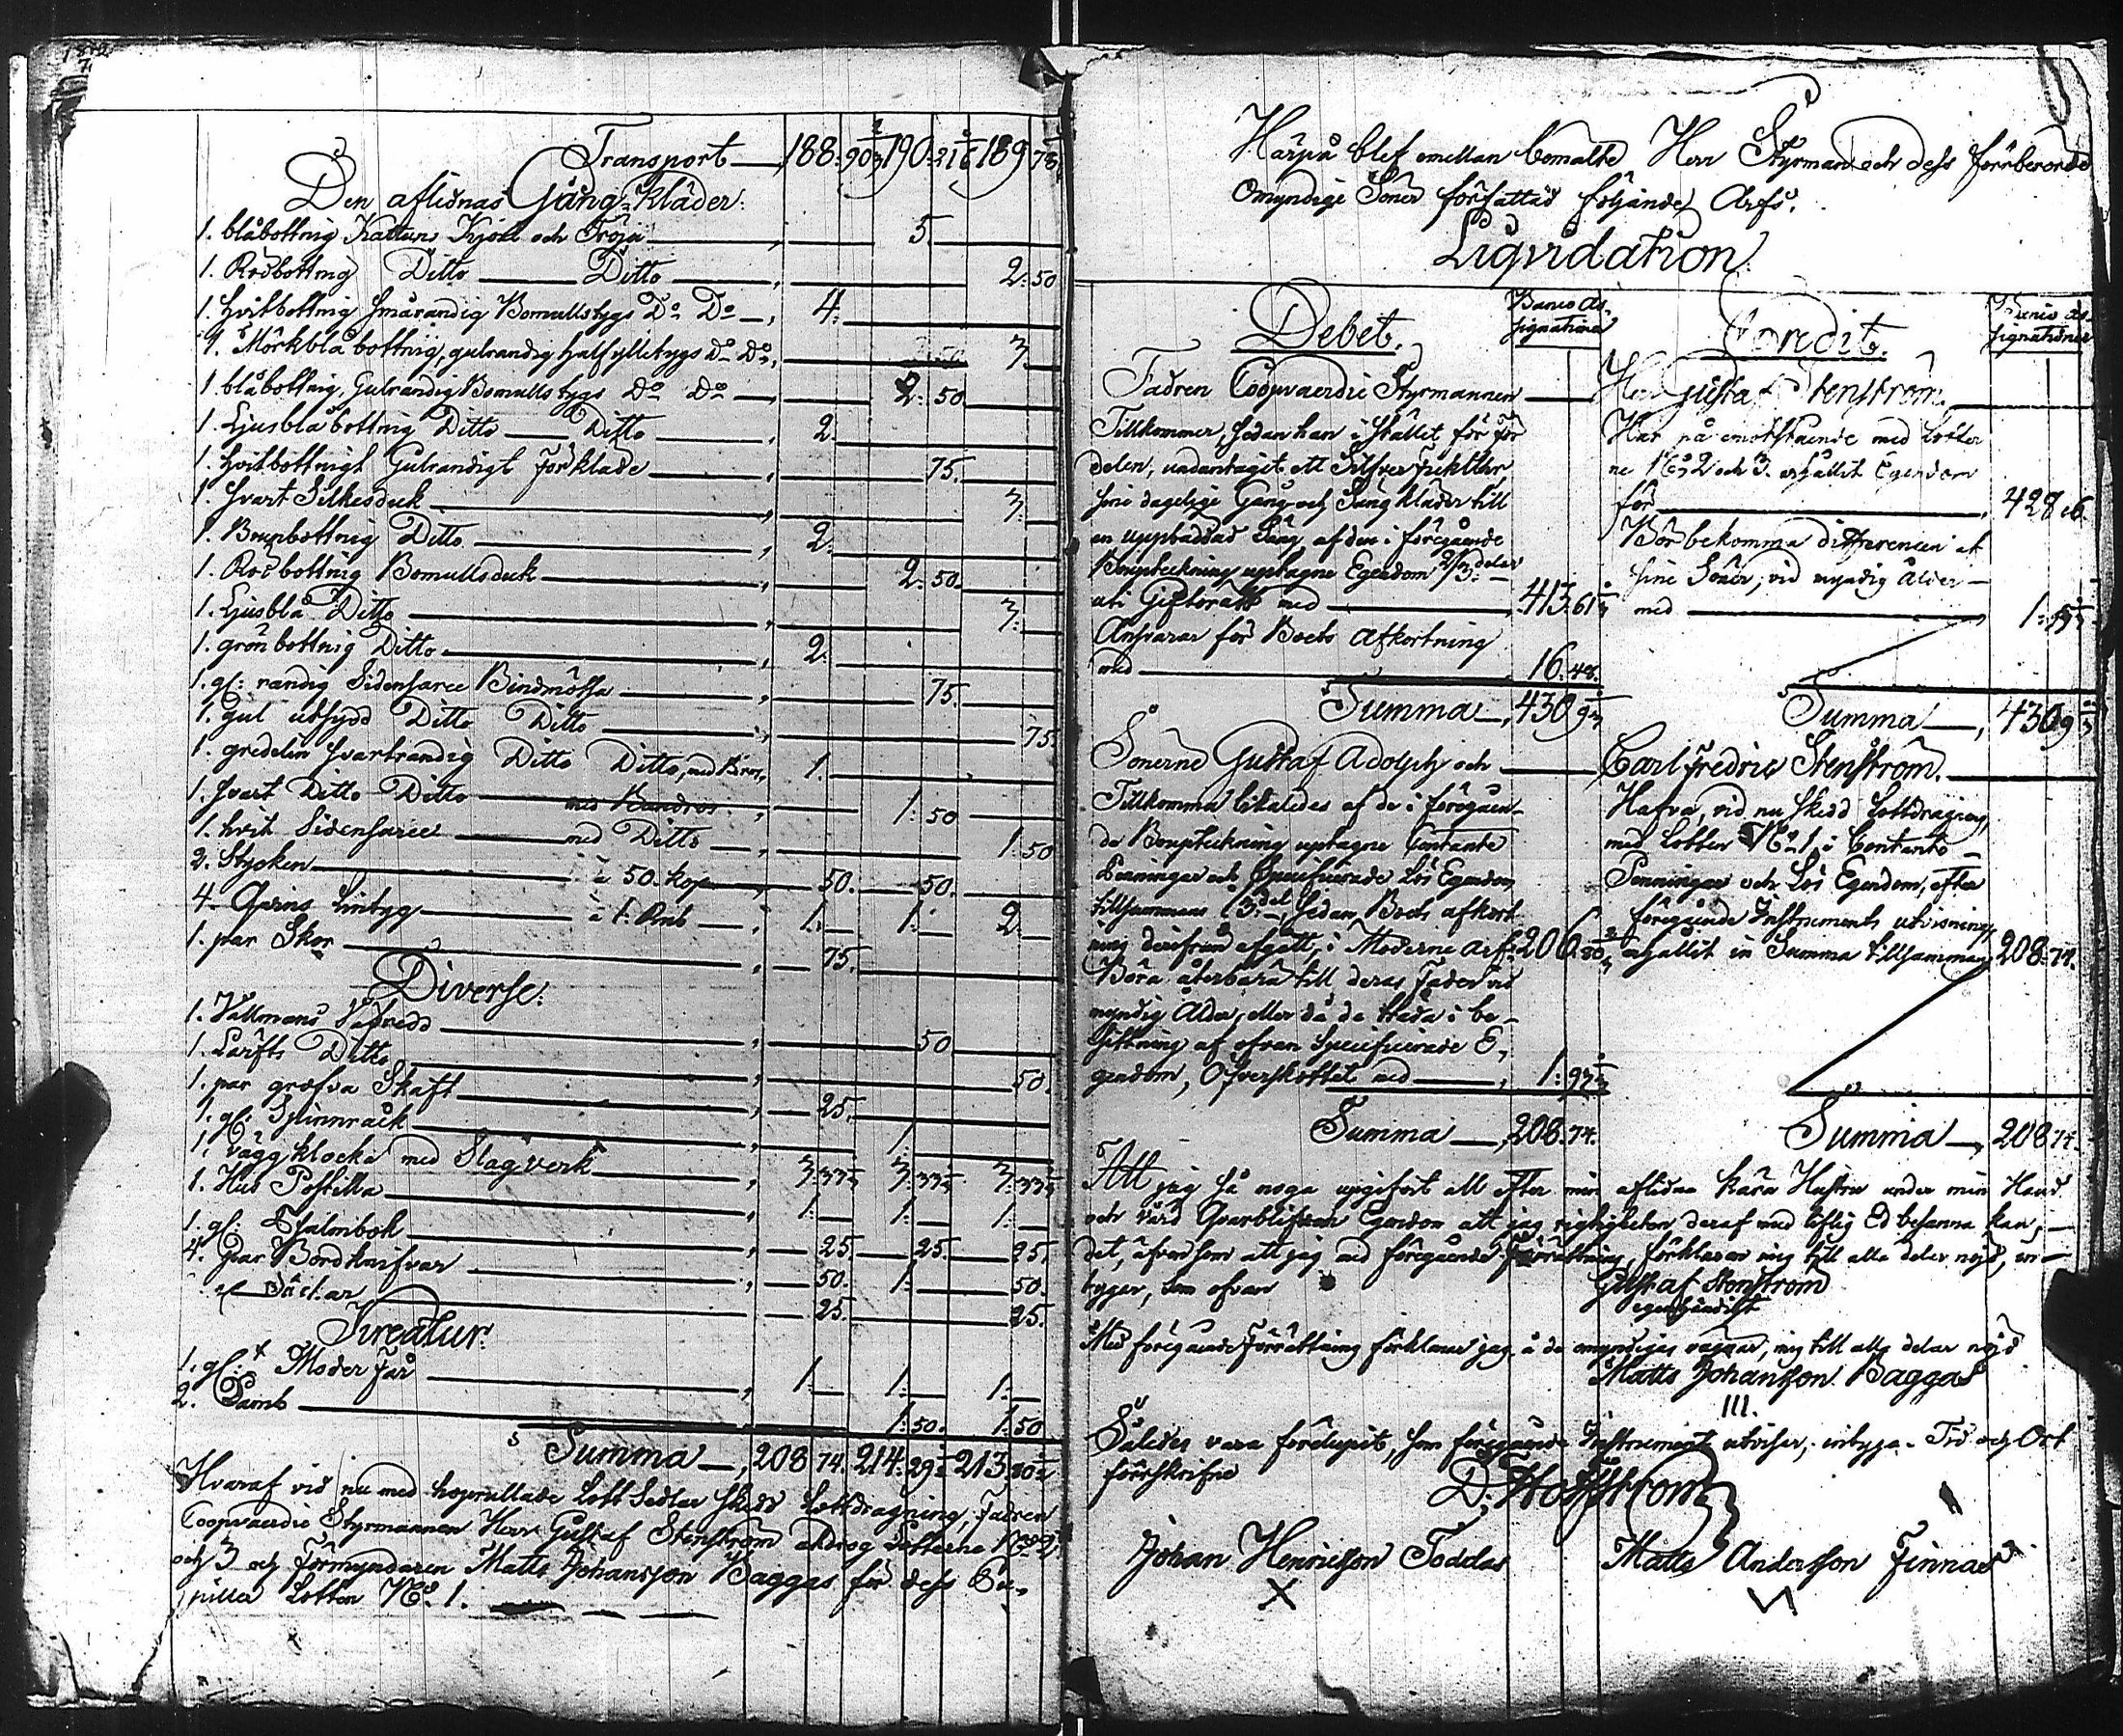 Transport 188. 90 2/3 190. 21 1/6 189 78
Den aflidnas Gång-kläder.
1. blåbottnig Kattuns Kjol och Tröja 5.
1. Rödbottnig Ditto Ditto 2. 50
1. hvitbottnig smårandig Bomullstygs Do Do 4.
1. Mörkblå bottnig, gulrandig halfylletygs Do Do 3
1. blåbottnig, Gulrandig Bomullstygs Do Do 2. 50
1. Ljusblå bottnig Ditto Ditto 2.
1. hvitbottnigt Gulrandigt Förkläde 75.
1. svart Silkesduk 3.
1. Brunbottnig Ditto 2.
1. Rödbottnig Bomullsduk 2. 50.
1. Ljusblå Ditto 3.
1. grönbottnig Ditto 2.
1. gl: randig Sidensarce Bindmössa 75.
1. gul utsydd Ditto Ditto 75.
1. gredelin svartrandig Ditto Ditto, med 1.
1. svart Ditto Ditto med Bandros 1. 50
1. hvit Sidensarce med Ditto 1. 50
2. Stycken à 50. kop 50. 50.
4. Lintyg à 1. Rub 1. 1. 2
1. par Skor 75.
Diverse:
1. Vallmans Väfredd 50
1. Lärfts Ditto 50
1. par grofva Skaft 25.
1. gl. Spinnrack 1.
1. väggklocka med Slagverk 3. 33 1/3 3. 33 1/3 3. 33 1/3
1. Hus Postilla 1. 1. 1.
1. gl: Psalmbok 25. 25. 25.
4. par Bordknifvar 50. 1. 50.
25. 25.
Kreatur.
1. gl: Moder Får 1. 1. 1.
2. Lamb 1. 50. 1. 50
Summa 208 74. 214. 29 213 80
Hvaraf vid nu med hoprullade Lott Sedlar skedd Lottdragning, Fadren
Coopvaerdie Styrmannen Herr Gustaf Stenström utdrog Lotterne No 2.
och 3 och Förmyndaren Matts Johansson Baggas för dess Pu-
piller Lotten No. 1.
Härpå blef emellan bemälte Herr Styrman och dess förrberorde
Omyndige Söner författad följande Arfs.
Liqvidation
Debet. Banco As-
signationer
Fadren Coopvaerdie Styrmannen
Tillkommer, sedan han i stället för för
delen, undantagit ett Silfver Fickur
sine dagelige Gång och Sängkläder till
en uppbäddad Säng af den i föregående
Bouptekning uptagne Egendom 2/3 delar
uti Giftorätt med 413. 61 1/3
Ansvarar för Boets Afkortning
med 16. 48.
Summa 430 9 1/3
Sönerne Gustaf Adolph och
Tillkomma likaledes af de i föregåen-
de Bouptekning uptagne Contante
Penningar och Specificerade Lös Egendom
tillsammans 1/3 del, sedan Boets afkort-
ning derifrån afgått, i Moderne arf. 206. 80 2/3
Böra återbära till deras Fader vid
myndig Ålder, eller då de träda i be-
sittning af ofvan Specificerade E-
gendom, Öfverskottet med 1. 93 1/3
Summa 208. 74.
Credit. Banco As-
signationer
Herr Gustaf Stenström.
Har på emotstående med Lotter
ne No 2 och 3. erhållit Egendom
för 428 16
Bör bekomma differencen af
sine Söner, vid myndig Ålder
med 1. 93 1/3
Summa 430 9 1/3
Carl Fredric Stenström.
Hafva, vid nu skedd Lottdragning,
med Lotten No 1, i Contante
Penningar och Lös Egendom, efter
föregående Instruments utvisning
erhållit en Summa tillsammans 208. 74.
Summa 208 74.
Att jag så noga upgifvit all efter min aflidna kära Hustru under min Hand
och vård qvarblifven Egendom att jag riktigheten deraf med liflig Ed besanna kan,
det, äfvensom att jag med föregående Förrättning, förklarar mig till alla delar nöjd, be-
tyger, som ofvan
Gustaf Stenström
egenhändigt
Med föregående Förrättning förklarar jag å de omyndiges vägnar, mig till alla delar nöjd
Matts Johansson Baggas
III.
Således vara förelupit, som föregående Instrument utviser, intyga. Tid och Ort
förrskrifne
Johan Henricsson Toddas
X
Matts Andersson Finnas